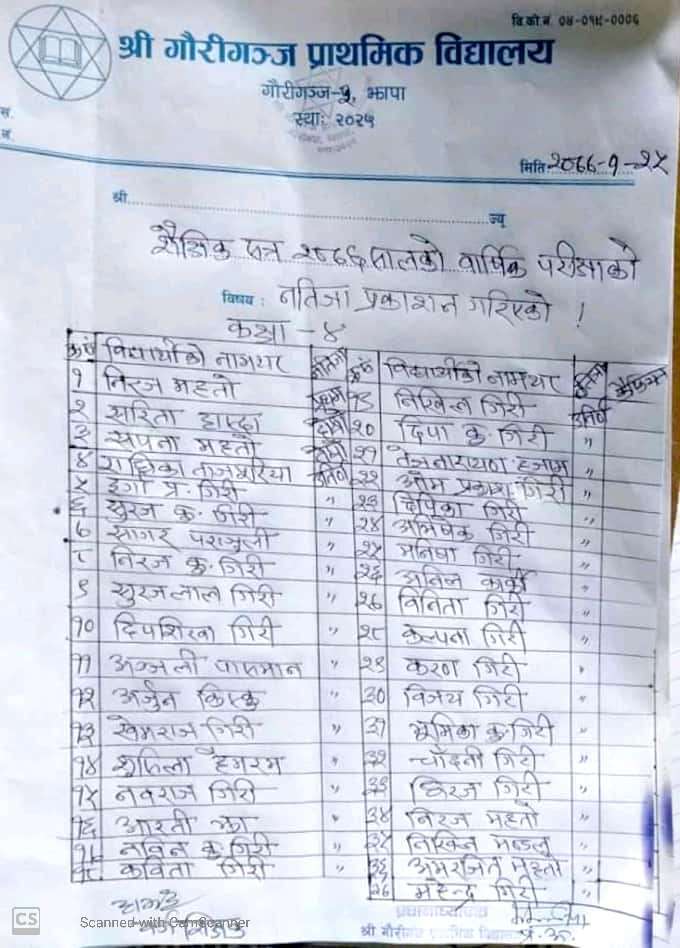 वि.को.नं. ०४-०१५-०००६
श्री गौरीगञ्ज प्राथमिक विद्यालय
गौरीगञ्ज-५, झापा
स्था: २०२५
मिति २०६६-१-२५
श्री..................................................ज्यू
शैक्षिक सत्र २०६५ सालको वार्षिक परीक्षाको
विषय : नतिजा प्रकाशन गरिएको !
कक्षा - ४
क्र.सं विद्यार्थीको नामथर नतिजा क्र.सं विद्यार्थीको नामथर नतिजा कैफियत
१ निरज महतो प्रथम १९ निखिल गिरी उतिर्ण
२ सरिता हास्दा २० दिपा कु. गिरी "
३ सपना महतो २१ तेजनारायण हजाम "
४ राधिका ताजपुरिया उतिर्ण २२ ओम प्रकाश गिरी "
५ दुर्गा प्र. गिरी " २३ दिपिका गिरी "
६ सुरज कु. गिरी " २४ अभिषेक गिरी "
७ सागर पराजुली " २५ मनिषा गिरी "
८ निरज कु. गिरी " २६ अनिल कार्की "
९ सुरजलाल गिरी " २७ विनिता गिरी "
१० दिपशिखा गिरी " २८ कल्पना गिरी "
११ अञ्जली पासमान " २९ करण गिरी "
१२ अर्जुन किस्कु " ३० विजय गिरी "
१३ खेमराज गिरी " ३१ भूमिका कु. गिरी "
१४ हेमरम " ३२ चाँदनी गिरी "
१५ नवराज गिरी " ३३ धिरज गिरी "
१६ आरती झा " ३४ निरज महतो "
१७ नविन कु. गिरी " ३५ मण्डल "
१८ कविता गिरी " ३६ अमरजित महतो "
३७ महेन्द्र गिरी "
प्रधानाध्यापक
प्र. अ.
श्री गौरीगंज प्राथमिक विद्यालय
CS
Scanned with CamScanner